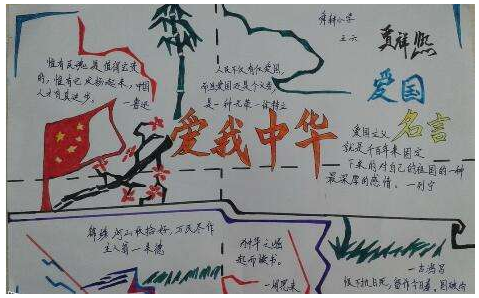 舜耕小学
三.六
贾祥熙
惟有民魂是值得宝贵
的，惟有它发扬起来，中国
人才有真进步。
—鲁迅
人民不仅有权爱国，
而且爱国还是个义务，
是一种光荣—徐特立
爱国
名言
爱我中华
爱国主义
就是千百年来固定
下来的对自己的祖国的一种
最深厚的感情。—列宁
锦绣河山收拾好，万民尽作
主人翁—朱德
为中华之崛
起而读书。
—周恩来
—吉鸿昌